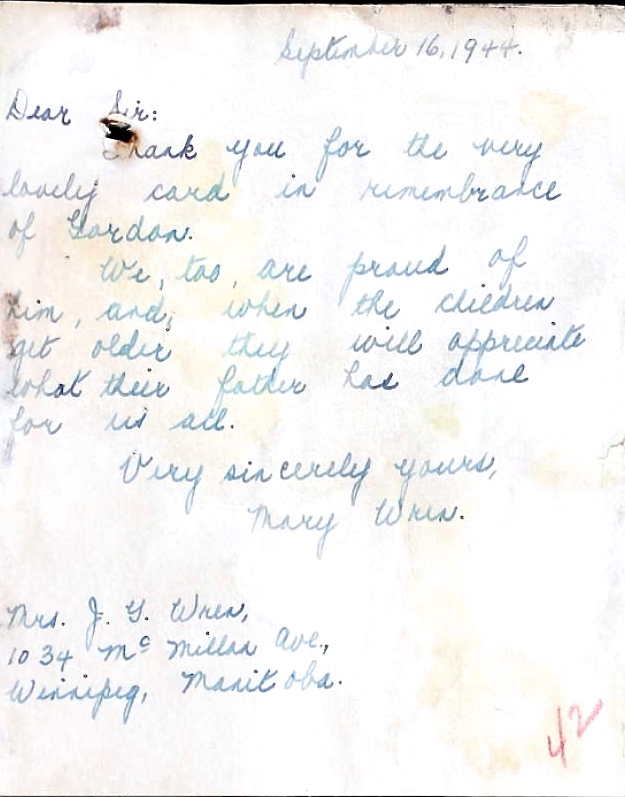 September 16, 1944.
Dear Sir:
Thank you for the very
lovely card in remembrance
of Gordon.
We, too, are proud of
him, and, when the children
get older they will appreciate
what their father has done
for us all.
Very sincerely yours,
Mary Wren.
Mrs. J. G. Wren,
1034 Mc Millan Ave.,
Winnipeg, Manitoba.
42